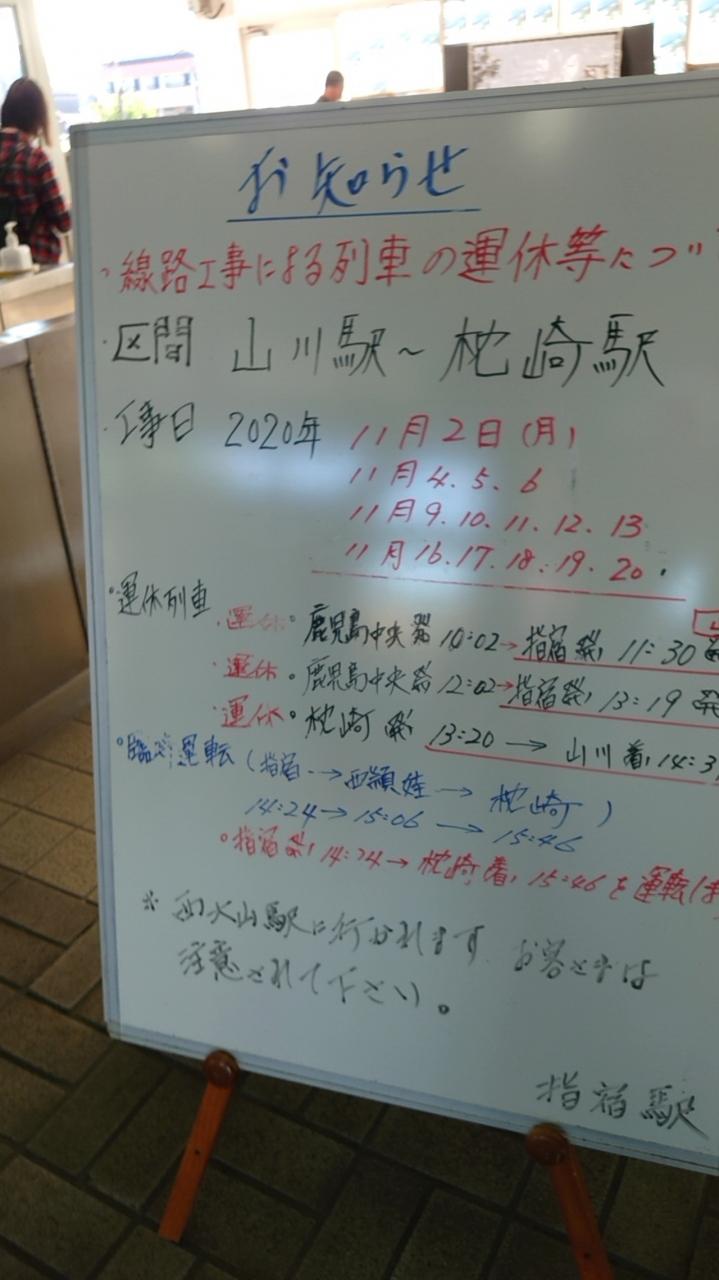 お知らせ
・線路工事による列車の運休等につ
・区間 山川駅～枕崎駅
・工事日 2020年 11月2日(月)
11月4.5.6
11月9.10.11.12.13
11月16.17.18.19.20.
・運休列車
・運休・鹿児島中央発10:02→指宿発11:30発
・運休・鹿児島中央発12:02→指宿発13:19発
・運休・枕崎発13:20→山川着14:3
・臨時運転(指宿→西頴娃→枕崎)
14:24→15:06→15:46
・指宿発14:24→枕崎着15:46を運転しま
※西大山駅に行かれます お客さまは
注意されて下さい。
指宿駅